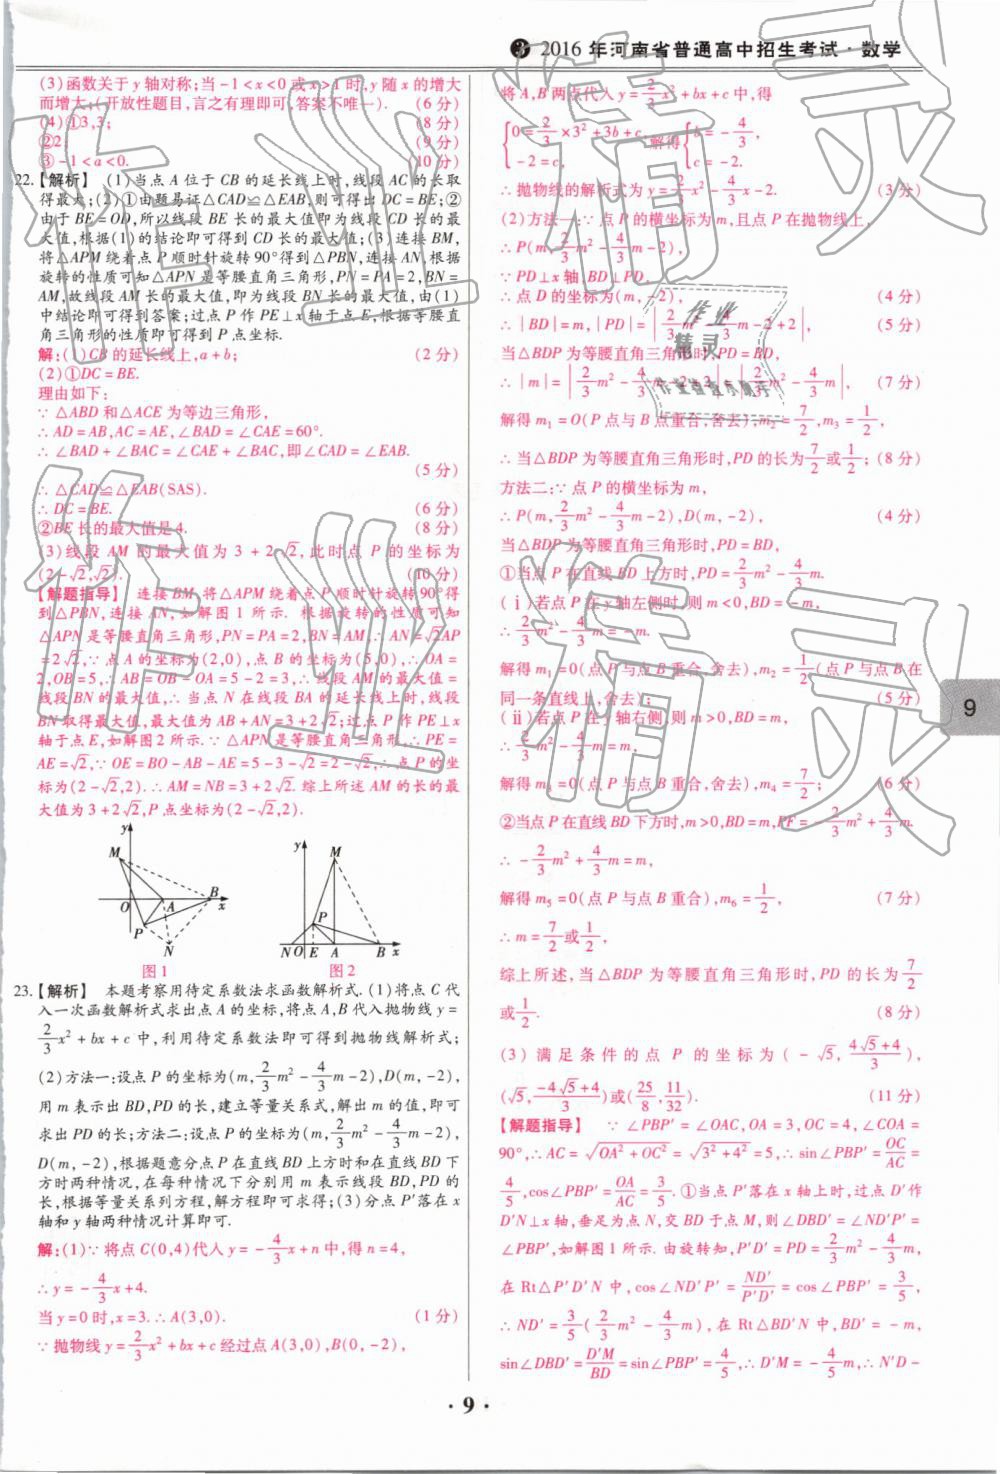 ③ 2016 年河南省普通高中招生考试·数学
(3)函数关于 y 轴对称;当 -1<x<0 或 x>1 时,y 随 x 的增大
而增大.(开放性题目,言之有理即可,答案不唯一). (6 分)
(4)①3,3; (8 分)
②2; (9 分)
③-1<a<0. (10 分)
22.【解析】 (1)当点 A 位于 CB 的延长线上时,线段 AC 的长取
得最大;(2)①由题易证△CAD≌△EAB,则可得出 DC=BE;②
由于 BE=CD,所以线段 BE 长的最大值即为线段 CD 长的最
大值,根据(1)的结论即可得到 CD 长的最大值;(3)连接 BM,
将△APM 绕着点 P 顺时针旋转 90°得到△PBN,连接 AN,根据
旋转的性质可知△APN 是等腰直角三角形,PN=PA=2,BN=
AM,故线段 AM 长的最大值,即为线段 BN 长的最大值,由(1)
中结论即可得到答案;过点 P 作 PE⊥x 轴于点 E,根据等腰直
角三角形的性质即可得到 P 点坐标.
解:(1)CB 的延长线上,a+b; (2 分)
(2)①DC=BE.
理由如下:
∵△ABD 和△ACE 为等边三角形,
∴AD=AB,AC=AE,∠BAD=∠CAE=60°.
∴∠BAD+∠BAC=∠CAE+∠BAC,即∠CAD=∠EAB.
(5 分)
∴△CAD≌△EAB(SAS).
∴DC=BE. (6 分)
②BE 长的最大值是 4. (8 分)
(3)线段 AM 的最大值为 3+2√2,此时点 P 的坐标为
(2-√2,√2). (10 分)
【解题指导】 连接 BM,将△APM 绕着点 P 顺时针旋转90°得
到△PBN,连接 AN,如解图 1 所示. 根据旋转的性质可知
△APN 是等腰直角三角形,PN=PA=2,BN=AM,∴AN=√2AP
=2√2,∵点 A 的坐标为(2,0),点 B 的坐标为(5,0),∴OA=
2,OB=5,∴AB=OB-OA=5-2=3,∴线段 AM 的最大值=
线段 BN 的最大值,∴当点 N 在线段 BA 的延长线上时,线段
BN 取得最大值,最大值为 AB+AN=3+2√2;过点 P 作 PE⊥x
轴于点 E,如解图 2 所示.∵△APN 是等腰直角三角形,∴PE=
AE=√2,∵OE=BO-AB-AE=5-3-√2=2-√2,∴点 P 的坐
标为(2-√2,2).∴AM=NB=3+2√2. 综上所述 AM 的长的最
大值为 3+2√2,P 点坐标为(2-√2,2).
y M B O A x P N
y M P N O E A B x
图 1 图 2
23.【解析】 本题考察用待定系数法求函数解析式.(1)将点 C 代
入一次函数解析式求出点 A 的坐标,将点 A,B 代入抛物线 y=
2/3x²+bx+c 中,利用待定系数法即可得到抛物线解析式;
(2)方法一:设点 P 的坐标为(m,2/3m²-4/3m-2),D(m,-2),
用 m 表示出 BD,PD 的长,建立等量关系式,解出 m 的值,即可
求出 PD 的长;方法二:设点 P 的坐标为(m,2/3m²-4/3m-2),
D(m,-2),根据题意分点 P 在直线 BD 上方时和在直线 BD 下
方时两种情况,在每种情况下分别用 m 表示线段 BD,PD 的
长,根据等量关系列方程,解方程即可求得;(3)分点 P′落在 x
轴和 y 轴两种情况计算即可.
解:(1)∵将点 C(0,4)代入 y=-4/3x+n 中,得 n=4,
∴y=-4/3x+4.
当 y=0 时,x=3.∴A(3,0). (1 分)
∵抛物线 y=2/3x²+bx+c 经过点 A(3,0),B(0,-2),
将 A,B 两点代入 y=2/3x²+bx+c 中,得
{0=2/3×3²+3b+c, -2=c, 解得{b=-4/3, c=-2.
∴抛物线的解析式为 y=2/3x²-4/3x-2. (3 分)
(2)方法一:∵点 P 的横坐标为 m,且点 P 在抛物线上,
∴P(m,2/3m²-4/3m-2),
∵PD⊥x 轴,BD⊥PD,
∴点 D 的坐标为(m,-2), (4 分)
∴|BD|=m,|PD|=|2/3m²-4/3m-2+2|, (5 分)
当△BDP 为等腰直角三角形时,PD=BD,
∴|m|=|2/3m²-4/3m-2+2|=|2/3m²-4/3m|, (7 分)
解得 m₁=0(P 点与 B 点重合,舍去),m₂=7/2,m₃=1/2,
∴当△BDP 为等腰直角三角形时,PD 的长为7/2或1/2;(8 分)
方法二:∵点 P 的横坐标为 m,
∴P(m,2/3m²-4/3m-2),D(m,-2), (4 分)
当△BDP 为等腰直角三角形时,PD=BD,
①当点 P 在直线 BD 上方时,PD=2/3m²-4/3m.
(ⅰ)若点 P 在 y 轴左侧时,则 m<0,BD=-m,
∴2/3m²-4/3m=-m,
解得 m₁=0(点 P 与点 B 重合,舍去),m₂=1/2(点 P 与点 B 在
同一条直线上,舍去); (5 分)
(ⅱ)若点 P 在 y 轴右侧,则 m>0,BD=m,
∴2/3m²-4/3m=m,
解得 m₃=0(点 P 与点 B 重合,舍去),m₄=7/2; (6 分)
②当点 P 在直线 BD 下方时,m>0,BD=m,PF=-2/3m²+4/3m.
∴-2/3m²+4/3m=m,
解得 m₅=0(点 P 与点 B 重合),m₆=1/2, (7 分)
∴m=7/2或1/2,
综上所述,当△BDP 为等腰直角三角形时,PD 的长为7/2
或1/2. (8 分)
(3)满足条件的点 P 的坐标为(-√5,(4√5+4)/3),
(√5,(-4√5+4)/3)或(25/8,11/32). (11 分)
【解题指导】 ∵∠PBP′=∠OAC,OA=3,OC=4,∠COA=
90°,∴AC=√(OA²+OC²)=√(3²+4²)=5,∴sin∠PBP′=OC/AC=
4/5,cos∠PBP′=OA/AC=3/5. ①当点 P′落在 x 轴上时,过点 D′作
D′N⊥x 轴,垂足为点 N,交 BD 于点 M,则∠DBD′=∠ND′P′=
∠PBP′,如解图 1 所示. 由旋转知,P′D′=PD=2/3m²-4/3m,
在 Rt△P′D′N 中,cos∠ND′P′=ND′/P′D′=cos∠PBP′=3/5,
∴ND′=3/5(2/3m²-4/3m),在 Rt△BD′N 中,BD′=-m,
sin∠DBD′=D′M/BD=sin∠PBP′=4/5,∴D′M=-4/5m,∴N′D-
9
· 9 ·
作业精灵
作业精灵
作业精灵